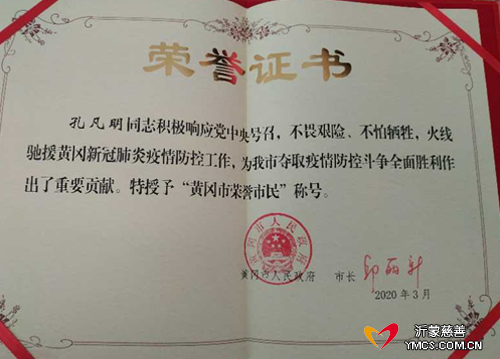 荣誉证书
孔凡明同志积极响应党中央号召，不畏艰险、不怕牺牲，火线
驰援黄冈新冠肺炎疫情防控工作，为我市夺取疫情防控斗争全面胜利作
出了重要贡献。特授予“黄冈市荣誉市民”称号。
黄冈市人民政府
黄冈市人民政府 市长 邱丽新
2020年3月
沂蒙慈善
YMCS.COM.CN